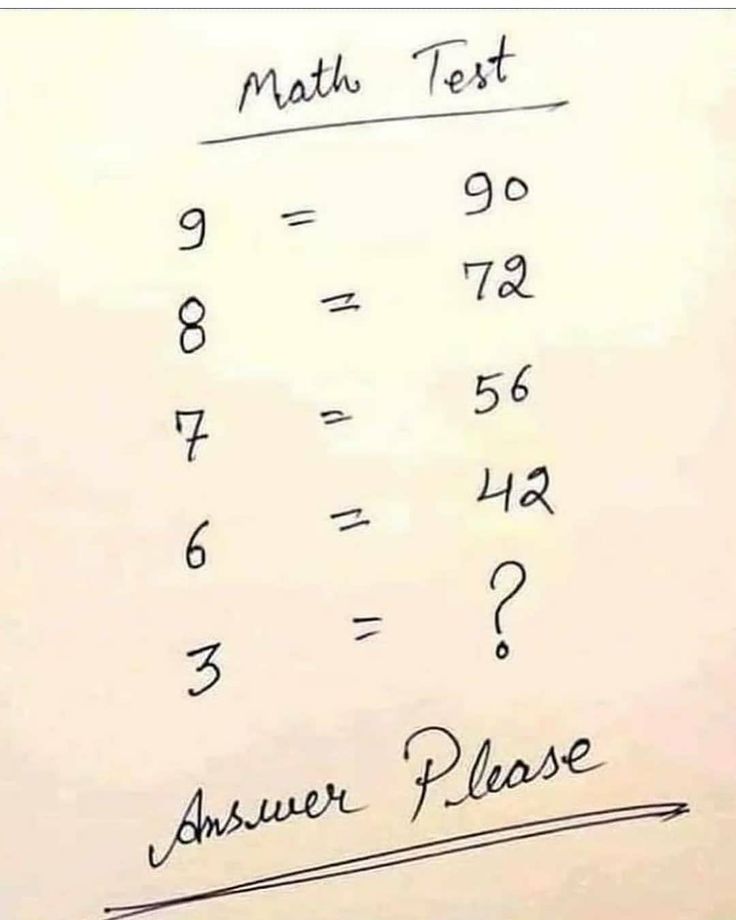 Math Test
9 = 90
8 = 72
7 = 56
6 = 42
3 = ?
Answer Please